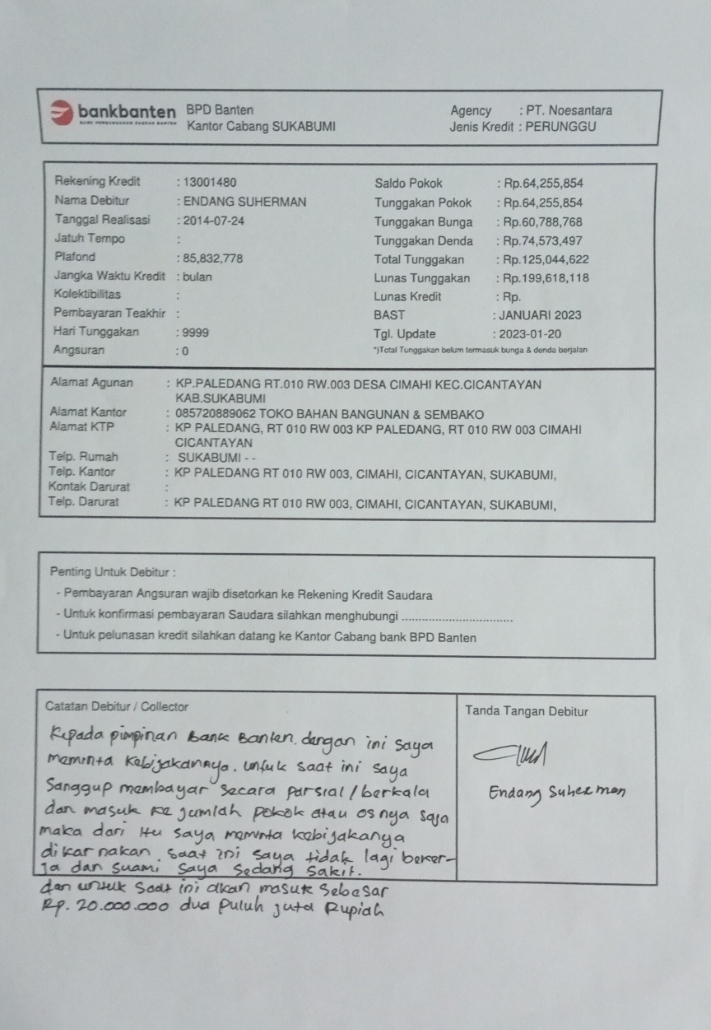 bankbanten
BPD Banten
Kantor Cabang SUKABUMI
Agency : PT. Noesantara
Jenis Kredit : PERUNGGU
Rekening Kredit : 13001480
Nama Debitur : ENDANG SUHERMAN
Tanggal Realisasi : 2014-07-24
Jatuh Tempo :
Plafond : 85,832,778
Jangka Waktu Kredit : bulan
Kolektibilitas :
Pembayaran Teakhir :
Hari Tunggakan : 9999
Angsuran : 0
Saldo Pokok : Rp.64,255,854
Tunggakan Pokok : Rp.64,255,854
Tunggakan Bunga : Rp.60,788,768
Tunggakan Denda : Rp.74,573,497
Total Tunggakan : Rp.125,044,622
Lunas Tunggakan : Rp.199,618,118
Lunas Kredit : Rp.
BAST : JANUARI 2023
Tgl. Update : 2023-01-20
*)Total Tunggakan belum termasuk bunga & denda berjalan
Alamat Agunan : KP.PALEDANG RT.010 RW.003 DESA CIMAHI KEC.CICANTAYAN
KAB.SUKABUMI
Alamat Kantor : 085720889062 TOKO BAHAN BANGUNAN & SEMBAKO
Alamat KTP : KP PALEDANG, RT 010 RW 003 KP PALEDANG, RT 010 RW 003 CIMAHI
CICANTAYAN
Telp. Rumah : SUKABUMI - -
Telp. Kantor : KP PALEDANG RT 010 RW 003, CIMAHI, CICANTAYAN, SUKABUMI,
Kontak Darurat :
Telp. Darurat : KP PALEDANG RT 010 RW 003, CIMAHI, CICANTAYAN, SUKABUMI,
Penting Untuk Debitur :
- Pembayaran Angsuran wajib disetorkan ke Rekening Kredit Saudara
- Untuk konfirmasi pembayaran Saudara silahkan menghubungi ................................
- Untuk pelunasan kredit silahkan datang ke Kantor Cabang bank BPD Banten
Catatan Debitur / Collector
Kepada pimpinan Bank Banten. dengan ini saya
meminta kebijakannya. untuk saat ini saya
Sanggup membayar secara parsial/berkala
dan masuk ke jumlah pokok atau osnya saja
maka dari itu saya meminta kebijakanya
dikarnakan saat ini saya tidak lagi beker-
ja dan suami saya sedang sakit.
dan untuk saat ini akan masuk sebesar
Rp. 20.000.000 dua puluh juta Rupiah
Tanda Tangan Debitur
Endang Suherman